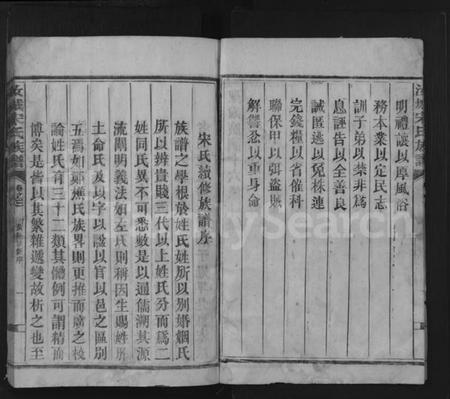 汝城宋氏族譜
明禮讓以厚風俗
務本業以定民志
訓子弟以禁非為
息誣告以全善良
誡匿逃以免株連
完錢糧以省催科
聯保甲以弭盜賊
解讐忿以重身命
宋氏續修族譜序
族譜之學根於姓氏姓所以別婚姻氏
所以辨貴賤三代以上姓氏分而為二
姓同氏異不可悉數是以通儒溯其源
流闡明義法如左氏則稱因生賜姓胙
土命氏及以字以諡以官以邑之區別
五焉如鄭樵氏族畧則更推而廣之校
論姓氏有三十二類其體例可謂精而
博矣是皆以其繁雜遞變故析之也至
汝城宋氏族譜
MySearch